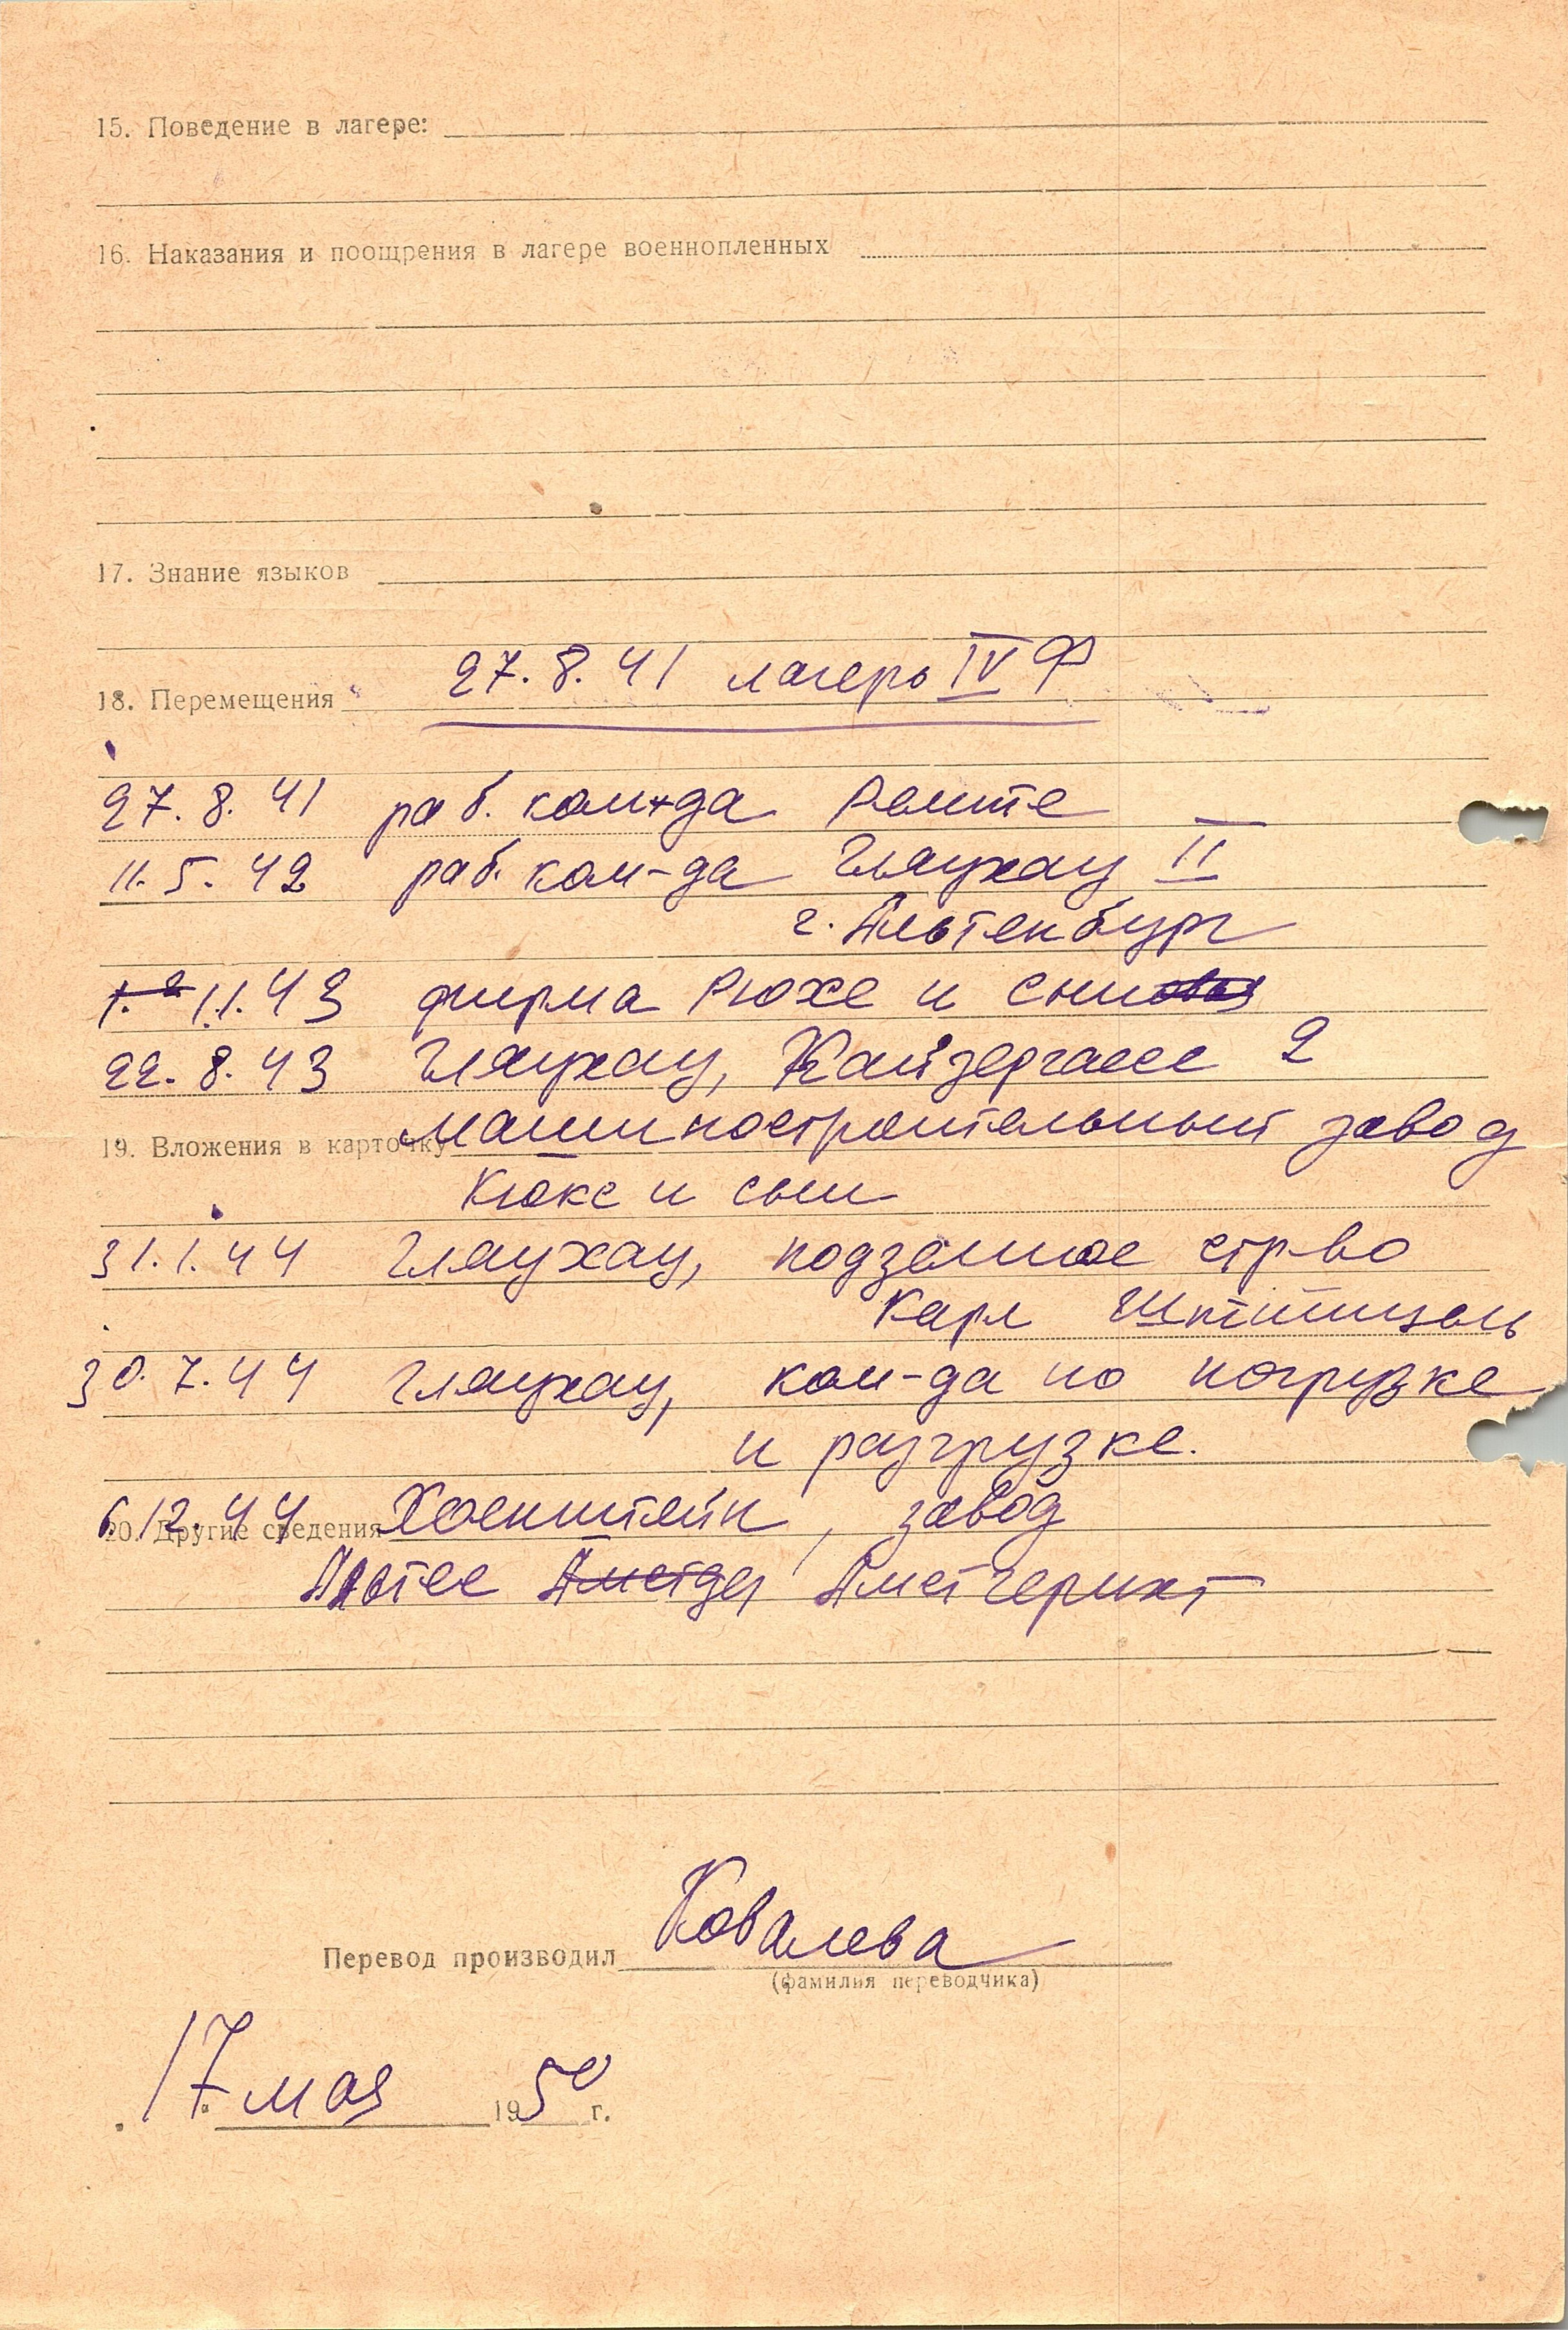 15. Поведение в лагере:
16. Наказания и поощрения в лагере военнопленных
17. Знание языков
27.8.41 лагерь IV Ф
18. Перемещения
27.8.41 раб. ком-да Ремте
11.5.42 раб. ком-да Гляухау II
г. Альтенбург
1.1.43 фирма Рюхе и сын
22.8.43 Гляухау, Кайзергассе 2
машиностроительный завод
19. Вложения в карточку
Кюкс и сын
31.1.44 Гляухау, подземное стр-во
Карл
30.7.44 Гляухау, ком-да по погрузке
и разгрузке.
6.12.44 Хоенштейн, завод
20. Другие сведения
Альтес Амстгерихт
Перевод производил Ковалева
(фамилия переводчика)
17 мая 1950 г.